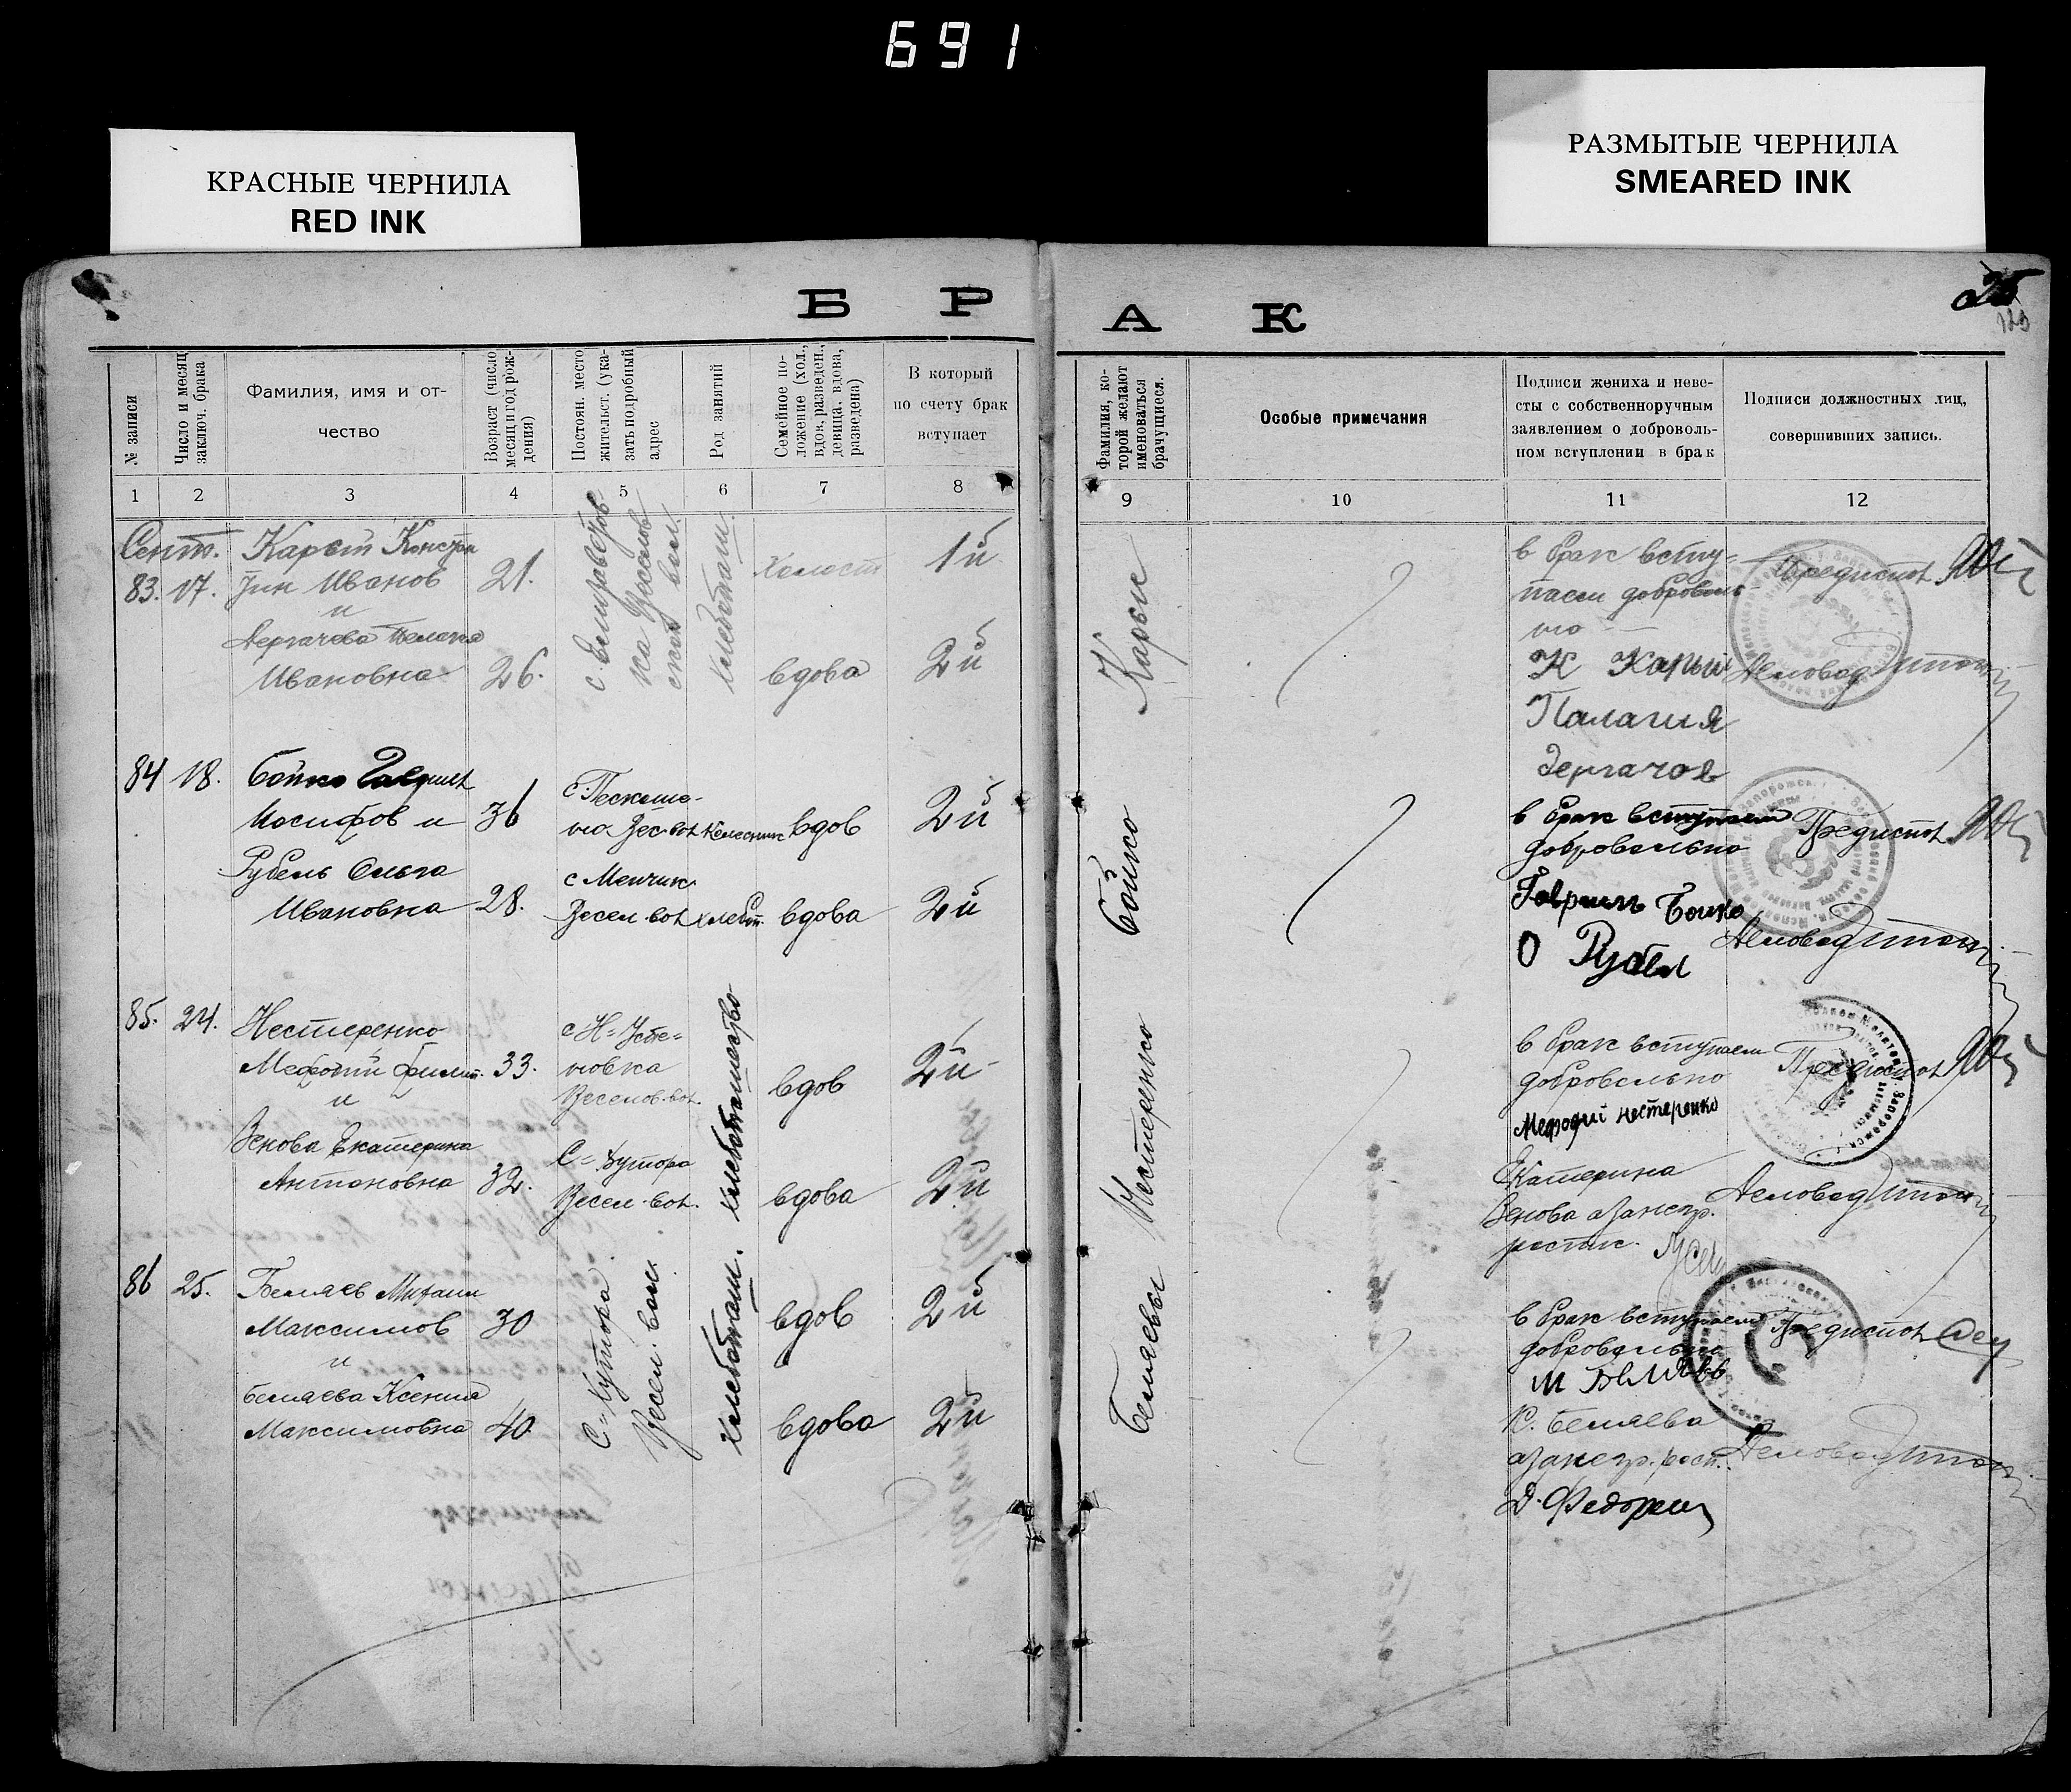 691
КРАСНЫЕ ЧЕРНИЛА
RED INK
РАЗМЫТЫЕ ЧЕРНИЛА
SMEARED INK
Б Р А К
№ записи
Число и месяц
заключ. брака
Фамилия, имя и от-
чество
Возраст (число
месяц и год рож-
дения)
Постоян. место
жительст. (ука-
зать подробный
адрес
Род занятий
Семейное по-
ложение (хол.,
вдов, разведен.,
девица, вдова,
разведена)
В который
по счету брак
вступает
Фамилия, ко-
торой желают
именоваться
брачущиеся.
Особые примечания
Подписи жениха и неве-
сты с собственноручным
заявлением о доброволь-
ном вступлении в брак
Подписи должностных лиц,
совершивших запись.
1 2 3 4 5 6 7 8 9 10 11 12
Сент.
83. 17.
Иванов
и
Ивановна
21.
26.
с Елизаветов
ка Веселов
ской вол.
хлебопаш.
холост
вдова
1й
2й
Карые
в брак всту-
паем доброволь-
но
К Карый
Палагия
Дергачов
Предиспол
Деловод
84 18.
Бойко Гавриил
Иосифов и
Рубель Ольга
Ивановна
36
28.
Весел. вол
вдов
вдова
2й
2й
Бойко
в брак вступаем
добровольно
Гавриил Бойко
О Рубел
Предиспол
Деловод
85. 24.
Нестеренко
Мефодий Филип.
и
Зенова Екатерина
Антоновна
33.
32.
новка
Веселов. вол.
С= Хутора
Весел. вол.
хлебопашество
вдов
вдова
2й
2й
Нестеренко
в брак вступаем
добровольно
Мефодий нестеренко
Екатерина
Зенова
Предиспол
Деловод
86 25.
Беляев Михаил
Максимов
и
Беляева Ксения
Максимовна
30
40
С= Хутора
Весел. вол.
хлебопаш.
вдов
вдова
2й
2й
Беляевы
в брак вступаем
добровольно
М Беляев
К. Беляева
Предиспол
Деловод